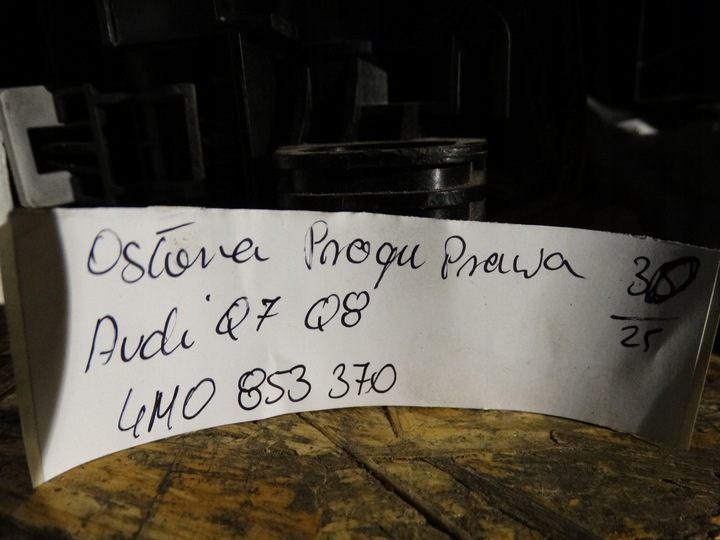 Osłona Progu Prawa
Audi Q7 Q8
4M0 853 370
30
25